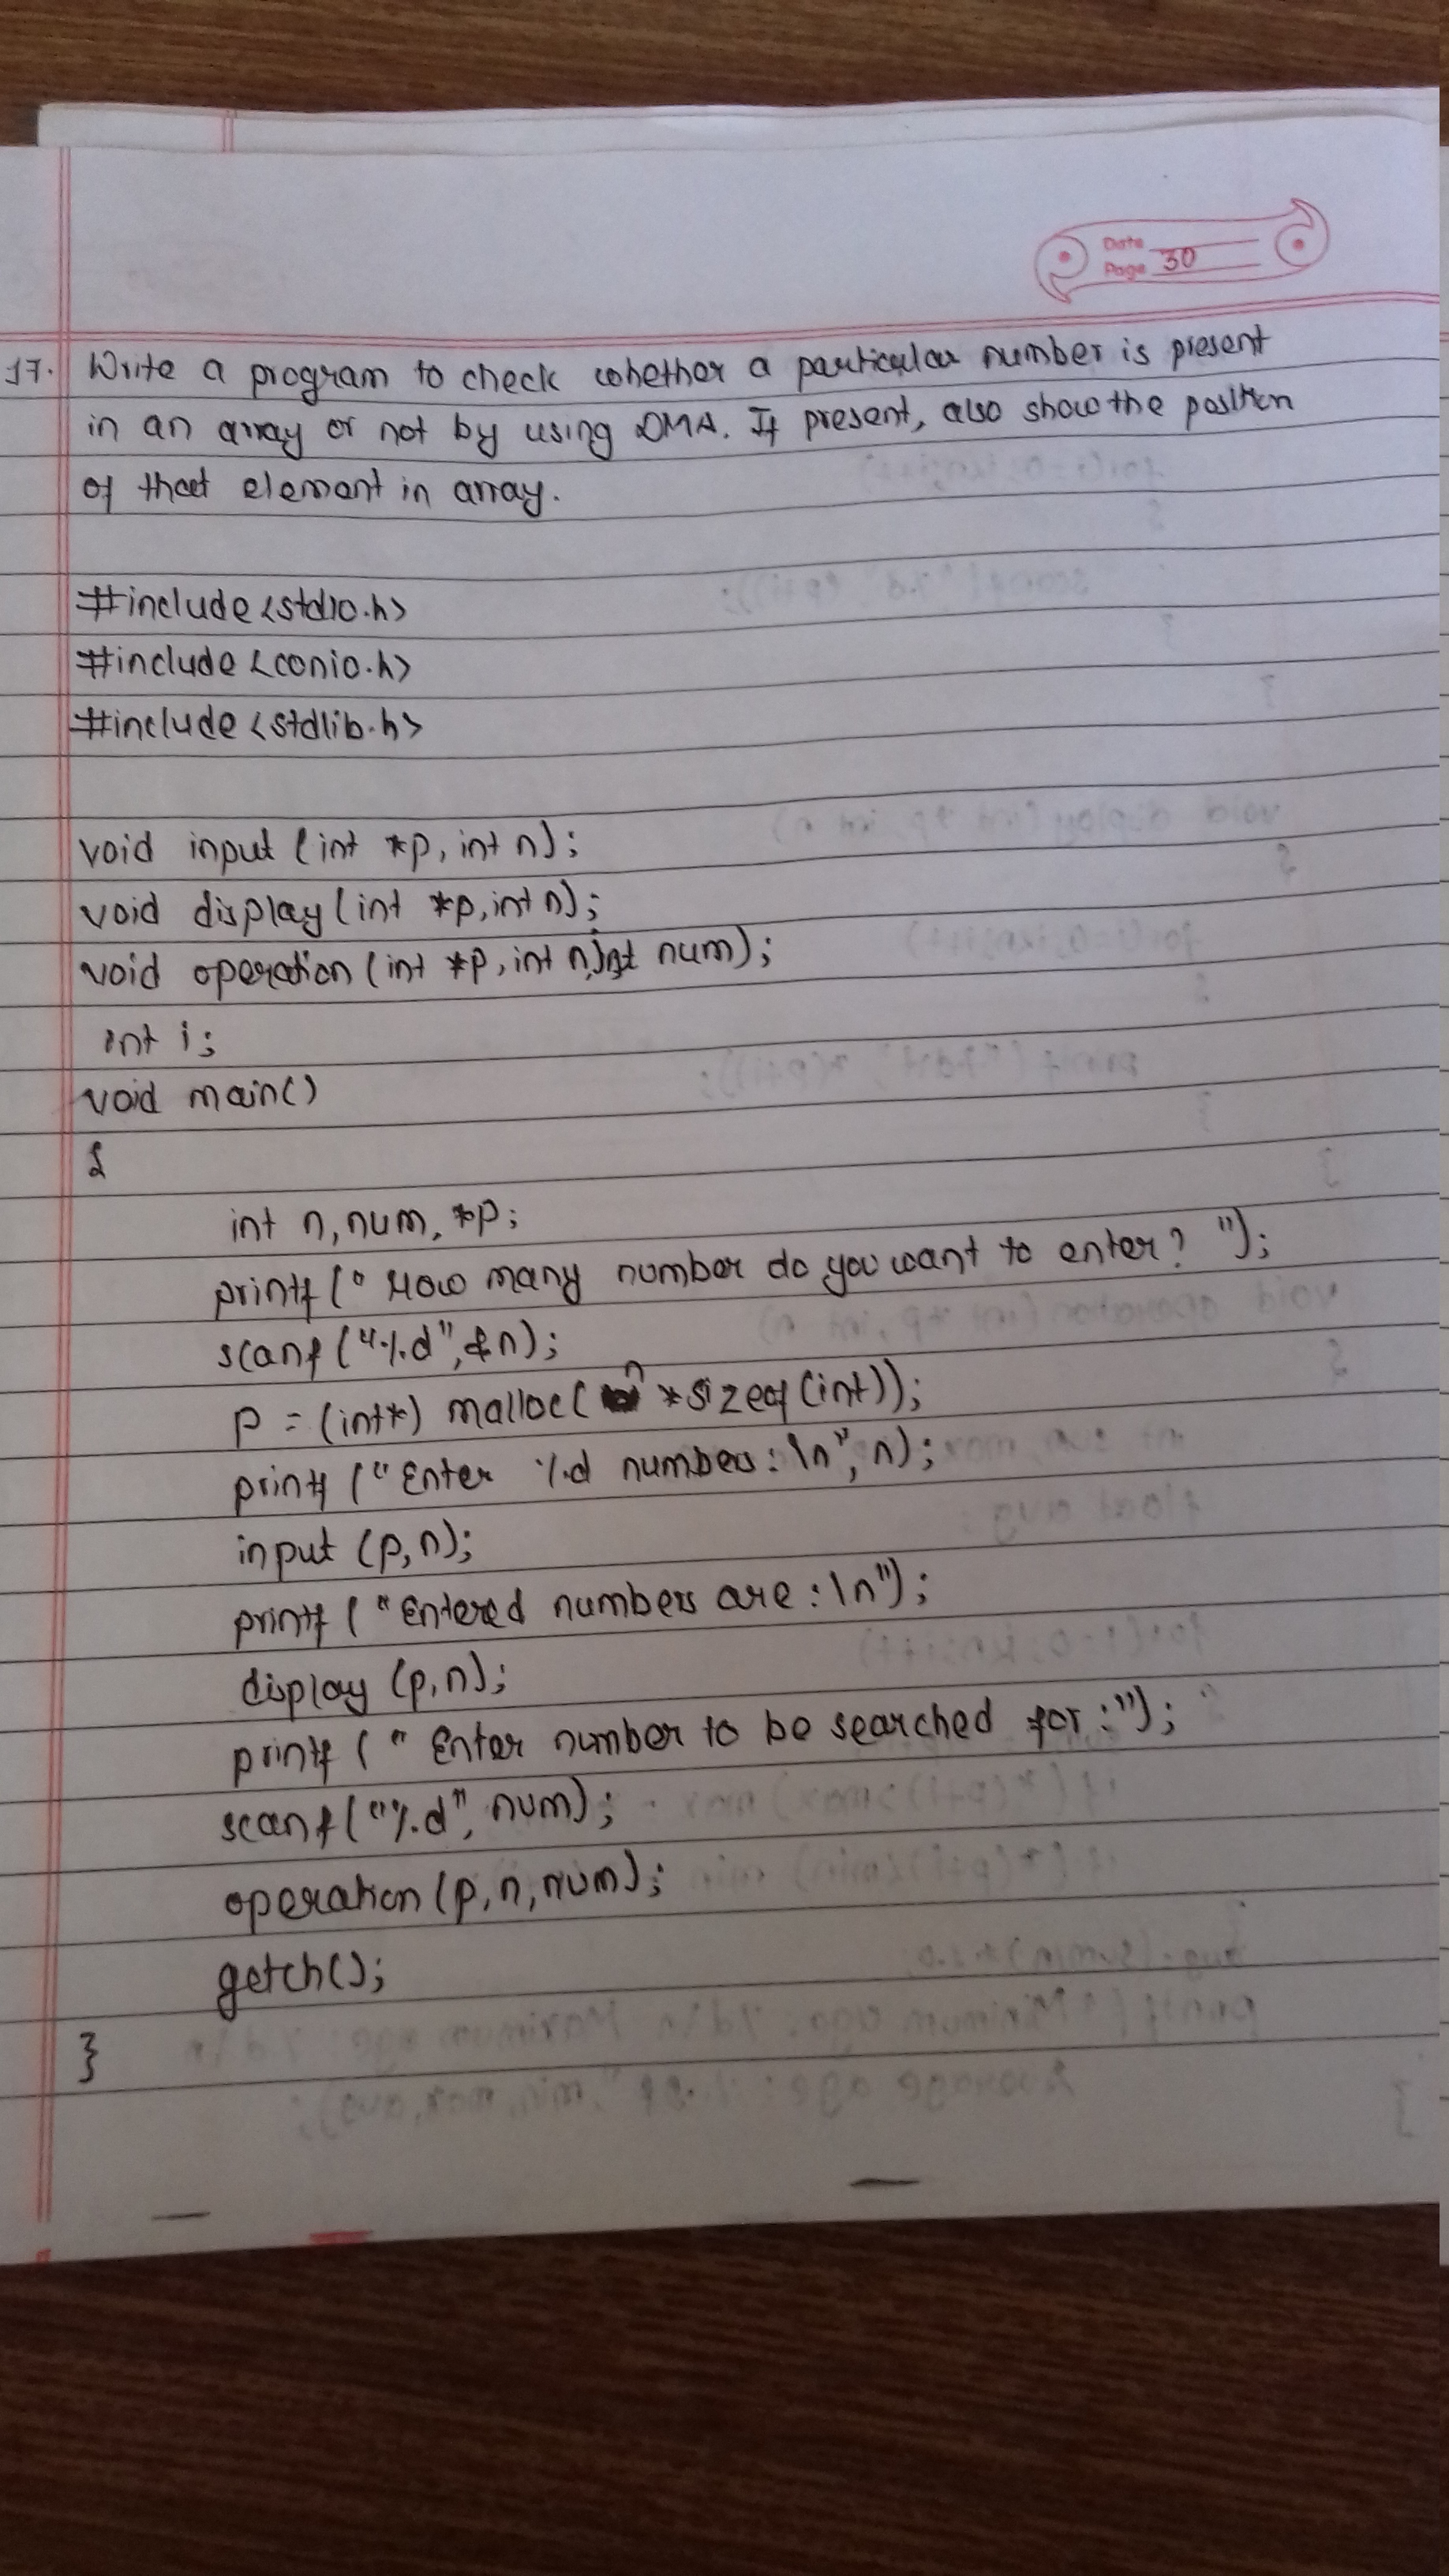 Date
Page 30
17. Write a program to check whether a particular number is present
in an array or not by using DMA. If present, also show the position
of that element in array.
#include<stdio.h>
#include<conio.h>
#include<stdlib.h>
void input (int *p, int n);
void display(int *p, int n);
void operation (int *p, int n, int num);
int i;
void main()
{
int n, num, *p;
printf (" How many number do you want to enter? ");
scanf ("%d", &n);
p = (int*) malloc( n *sizeof (int));
printf ("Enter %d numbers: \n", n);
input (p,n);
printf ("Entered numbers are : \n");
display (p,n);
printf (" Enter number to be searched for :");
scanf ("%d", num);
operation (p, n, num);
getch();
}